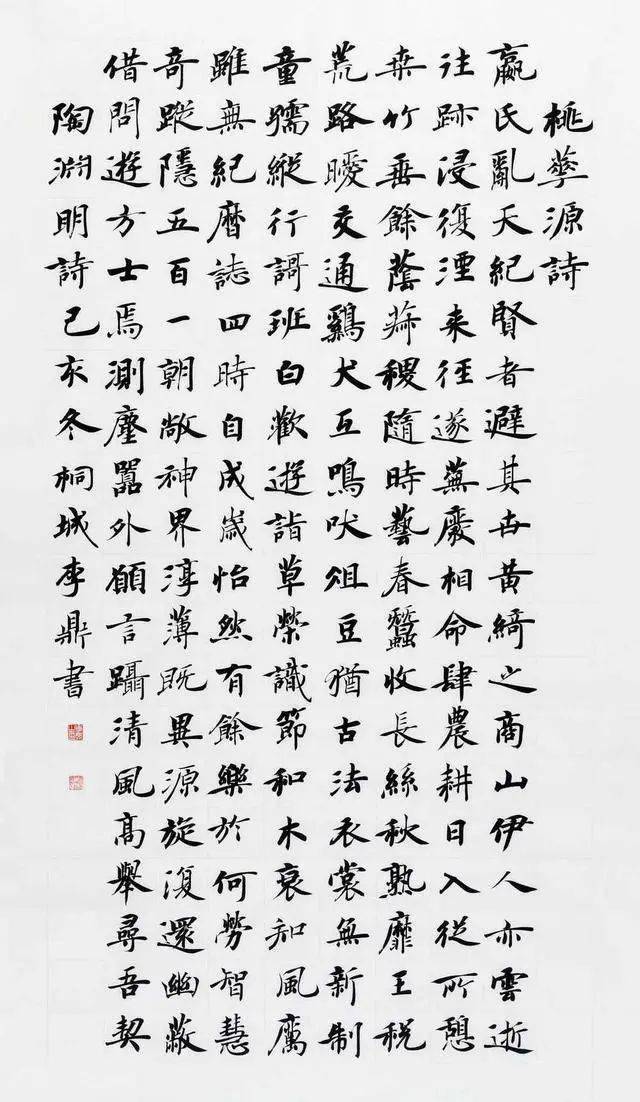 桃華源詩
嬴氏亂天紀賢者避其世黃綺之商山伊人亦雲逝
往跡浸復湮来徑遂蕪廢相命肆農耕日入從所憩
桒竹垂餘蔭菽稷隨時藝春蠶收長絲秋熟靡王稅
荒路曖交通鷄犬互鳴吠俎豆猶古法衣裳無新制
童孺縱行謌班白歡遊詣草榮識節和木衰知風厲
雖無紀曆誌四時自成歲怡然有餘樂於何勞智慧
奇蹤隱五百一朝敞神界淳薄既異源旋復還幽蔽
借問遊方士焉測塵囂外願言躡清風高舉尋吾契
陶渊明詩己亥冬桐城李鼎書